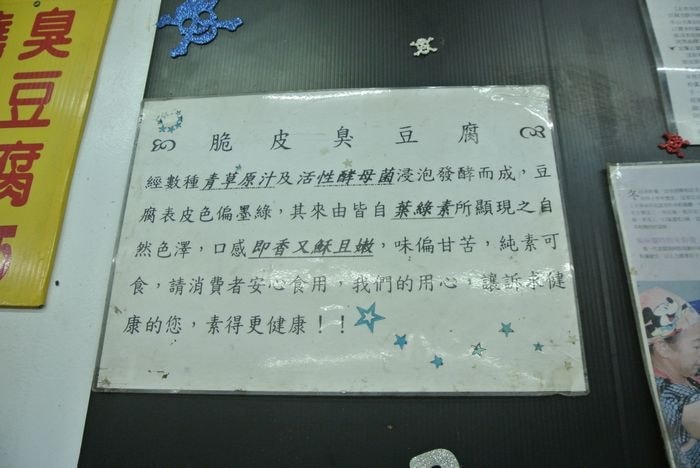 臭豆腐
脆皮臭豆腐
經數種青草原汁及活性酵母菌浸泡發酵而成，豆
腐表皮色偏墨綠，其來由皆自葉綠素所顯現之自
然色澤，口感即香又穌且嫩，味偏甘苦，純素可
食，請消費者安心食用，我們的用心，讓訴求健
康的您，素得更健康！！
冬